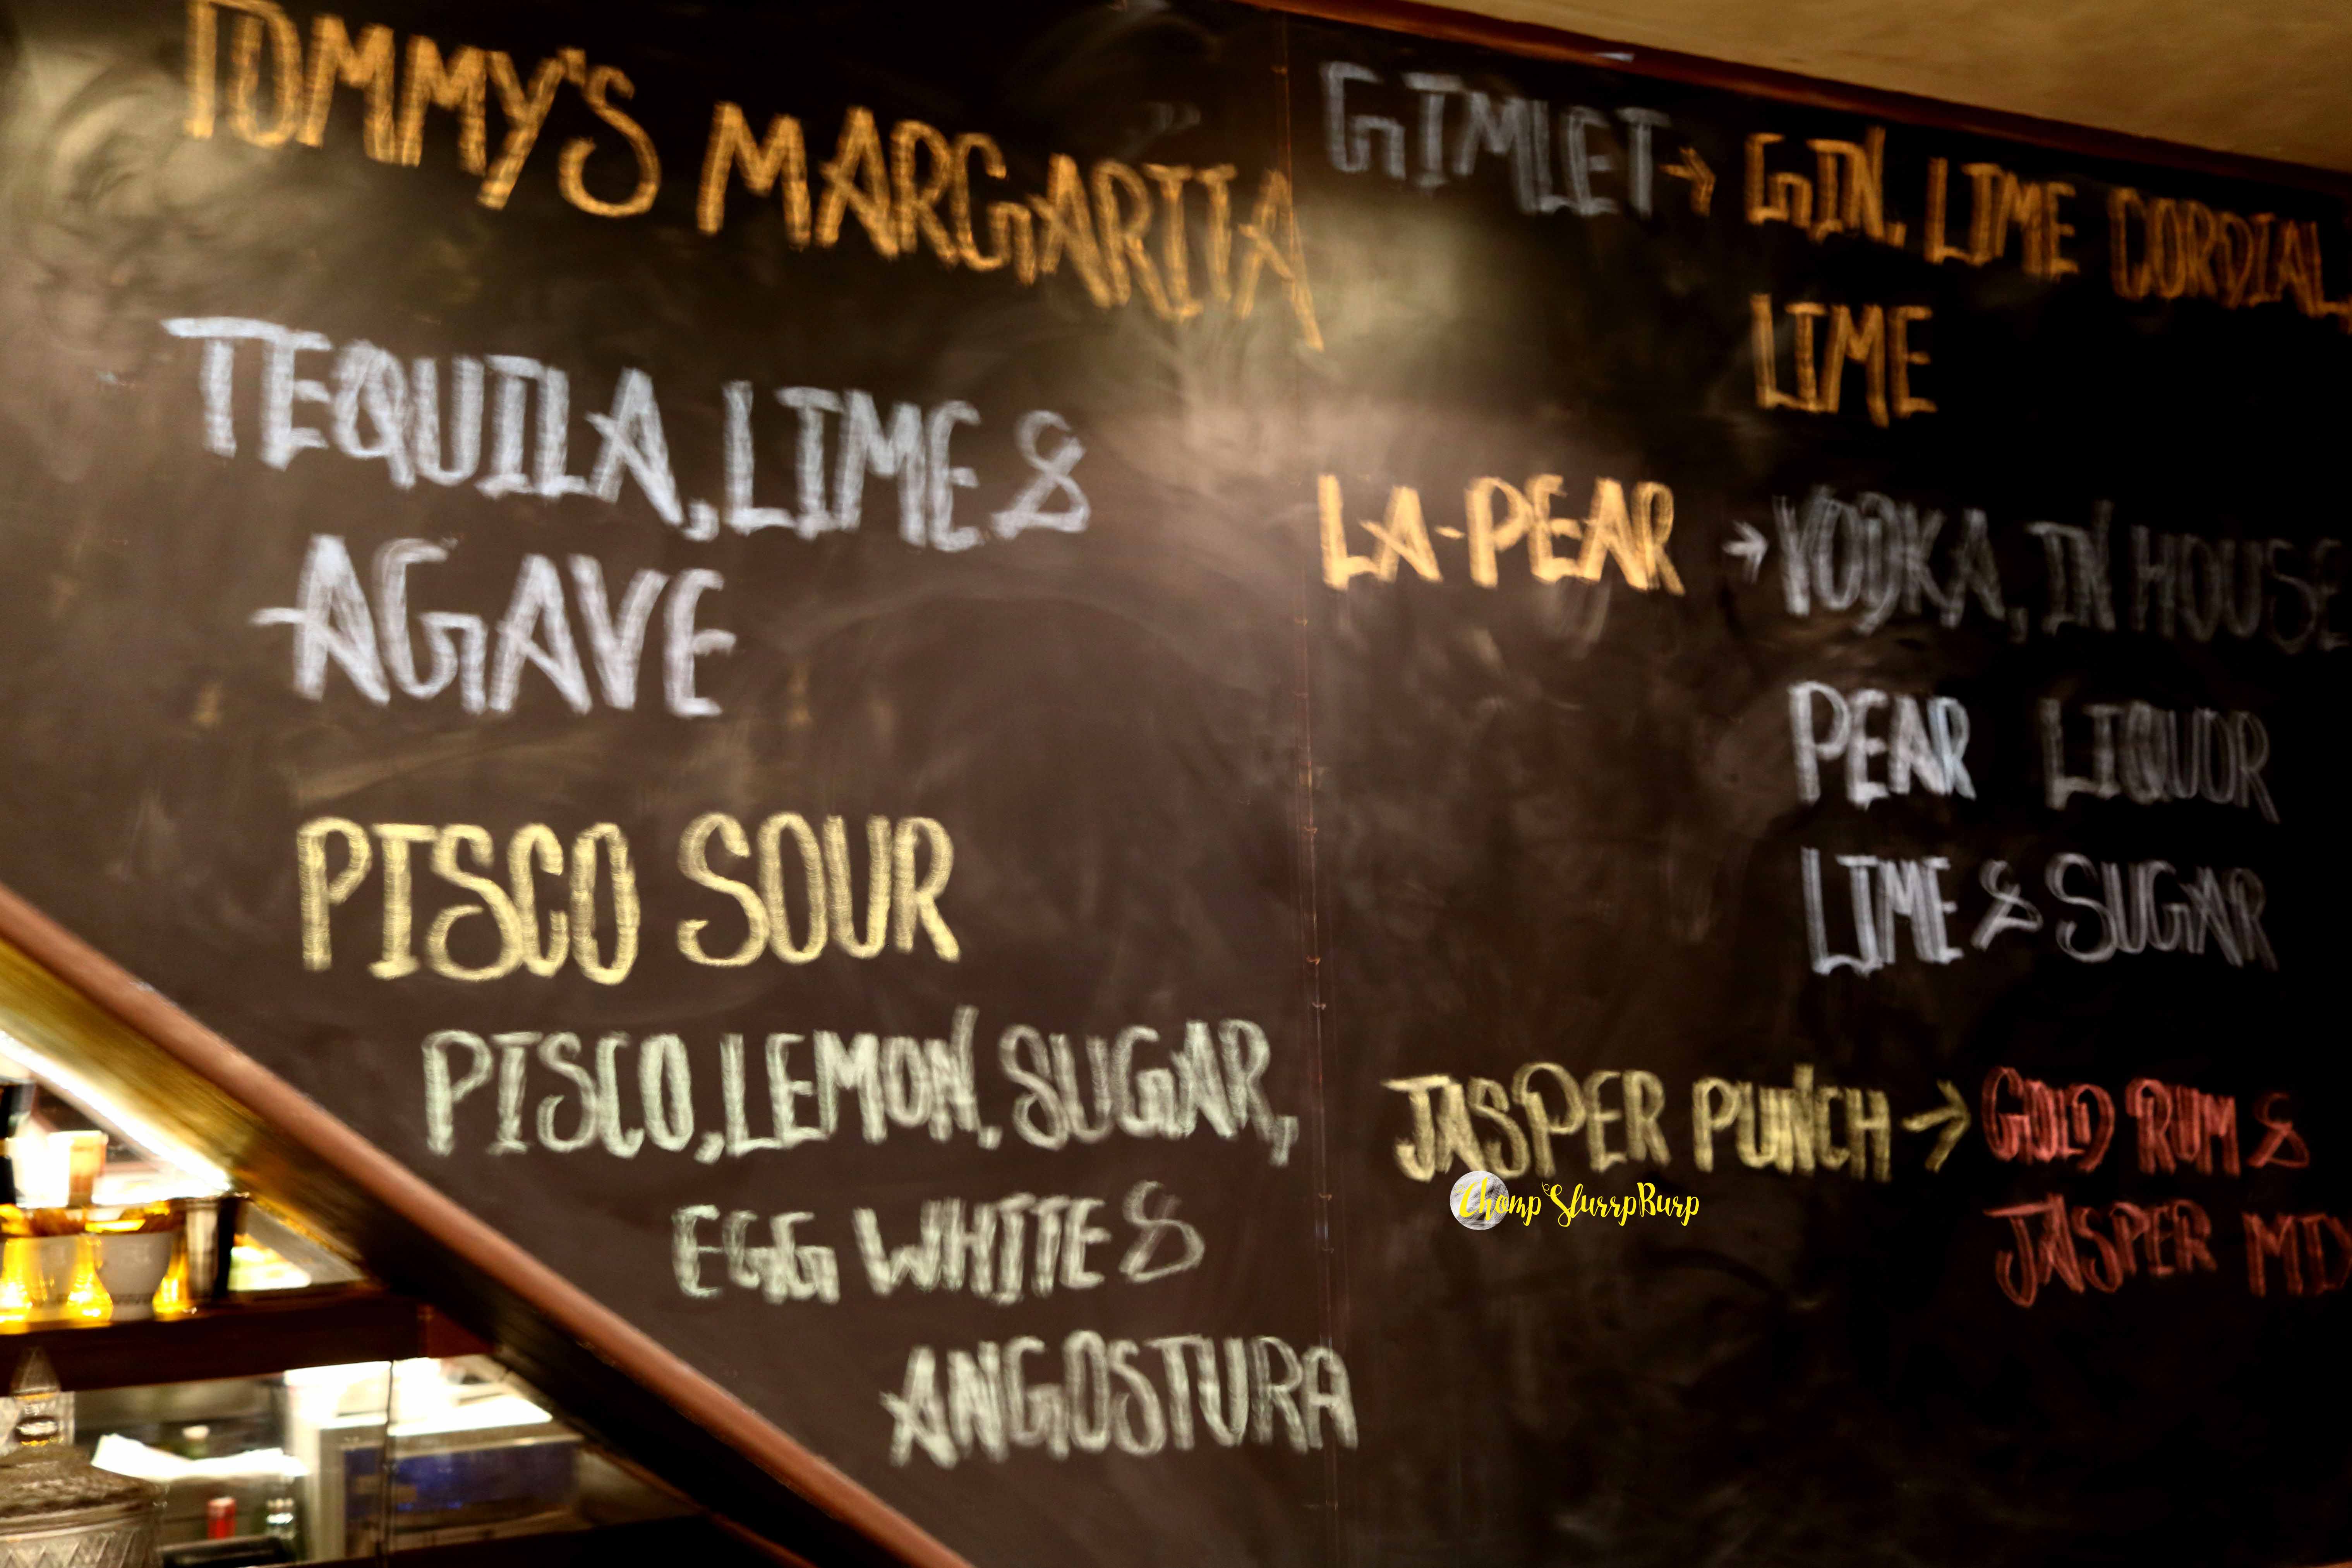 TOMMY'S MARGARITA
TEQUILA, LIME &
AGAVE
PISCO SOUR
PISCO, LEMON, SUGAR,
EGG WHITE &
ANGOSTURA
GIMLET → GIN, LIME CORDIAL,
LIME
LA-PEAR → VODKA, IN HOUSE
PEAR LIQUOR
LIME & SUGAR
JASPER PUNCH → GOLD RUM &
JASPER MIX
Chomp SlurrpBurp